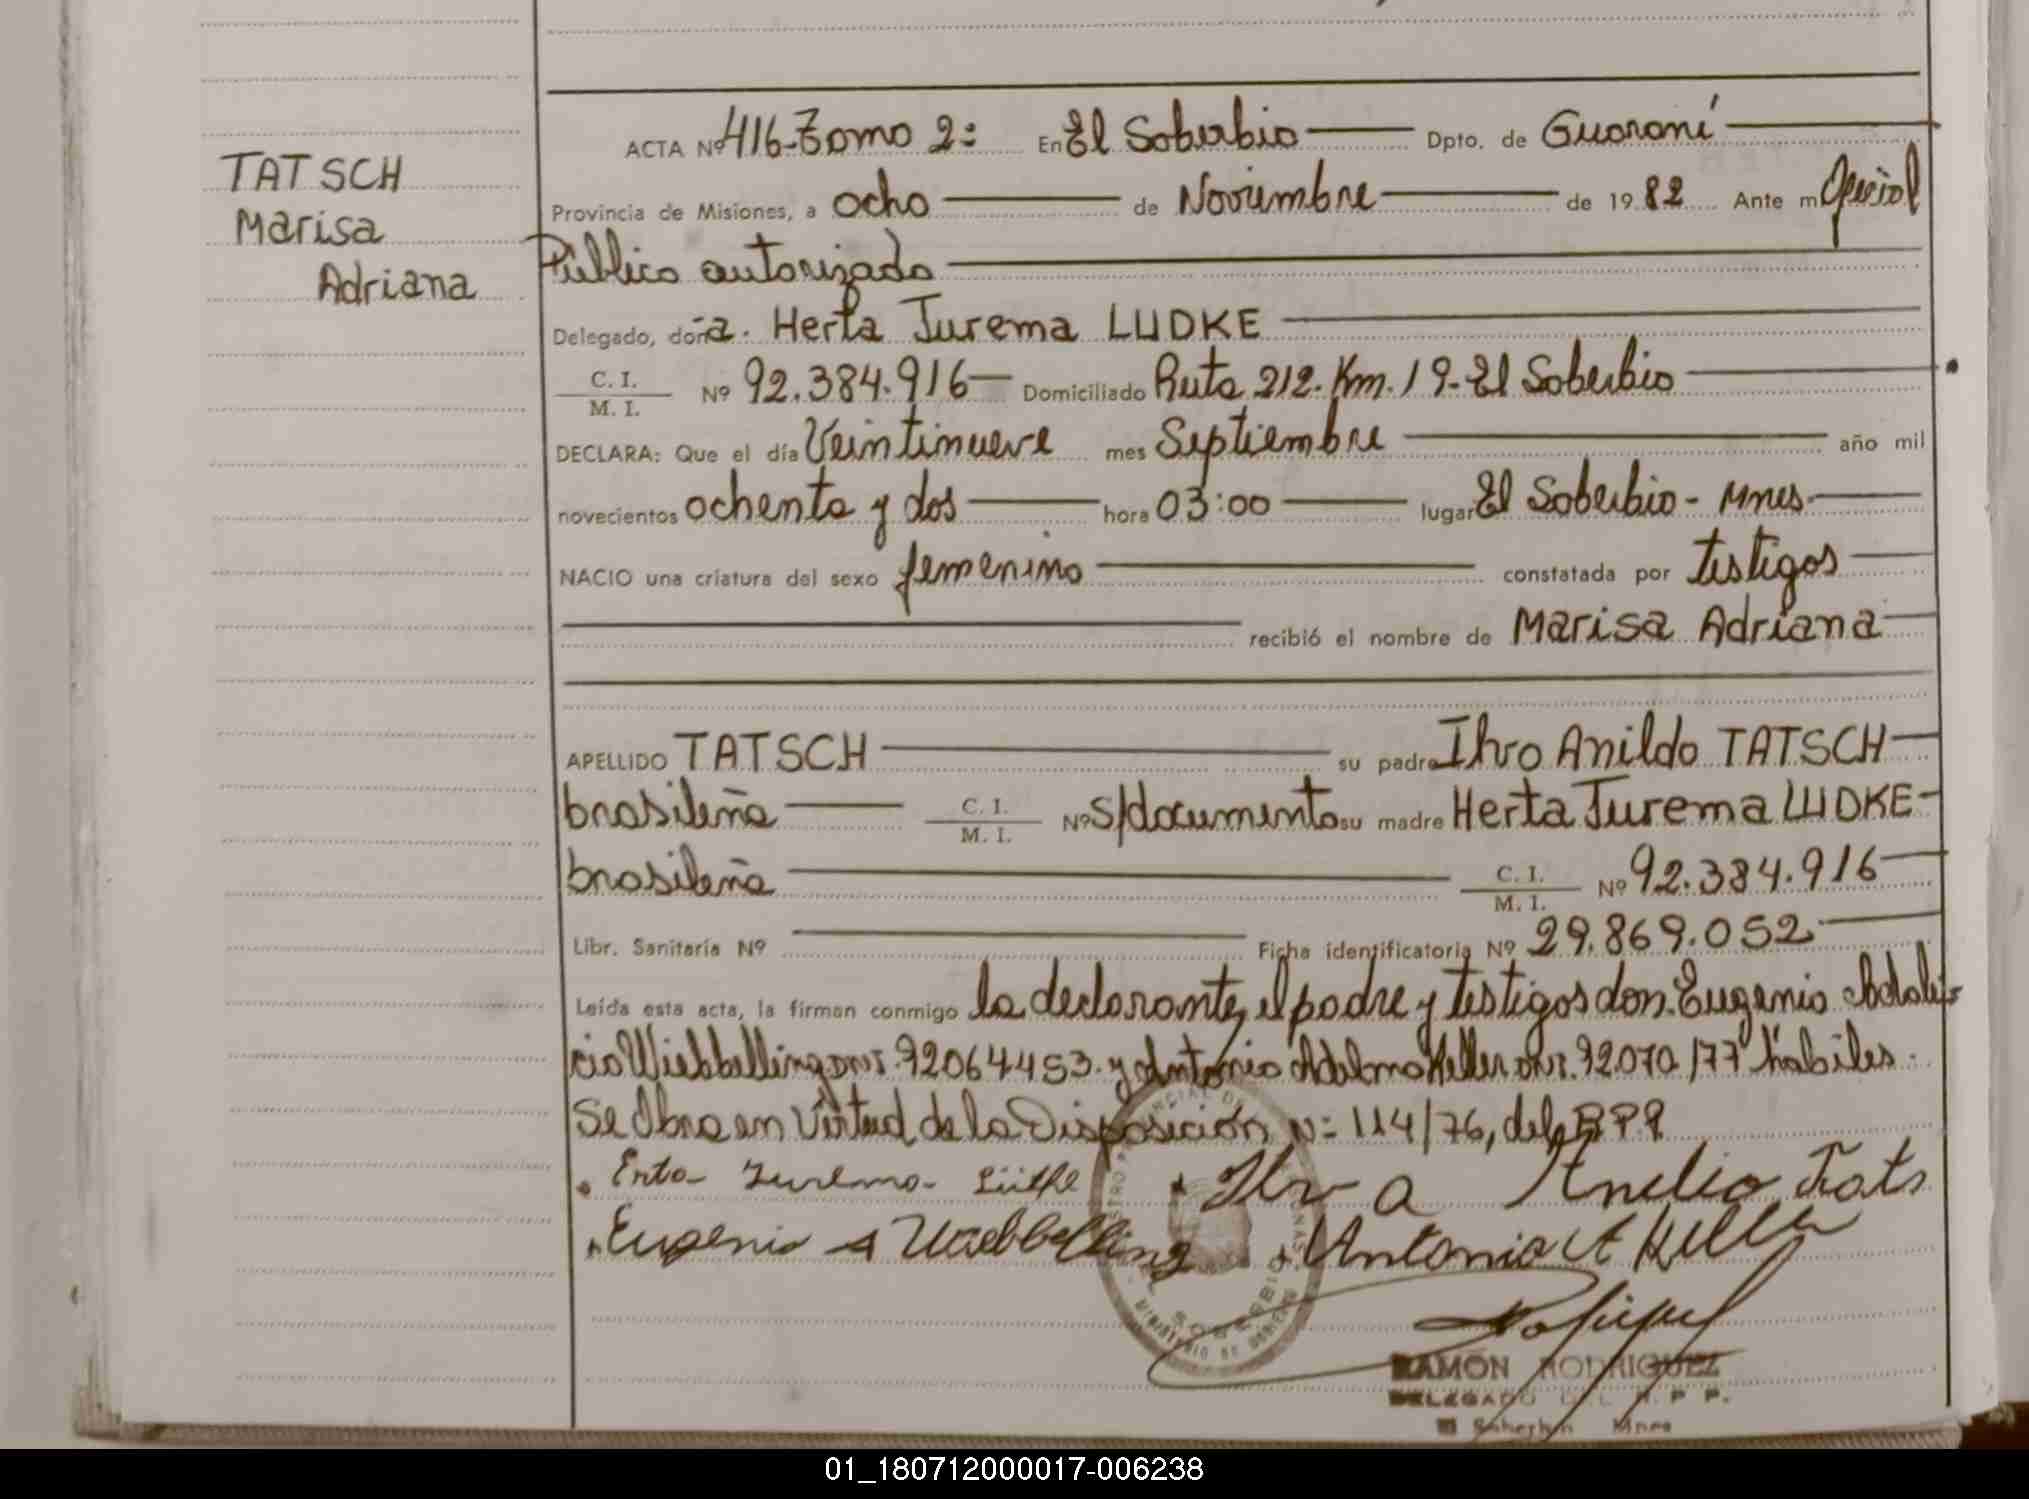 TATSCH
Marisa
Adriana
ACTA Nº 416-Tomo 2: En El Soberbio Dpto. de Guaraní
Provincia de Misiones, a ocho de Noviembre de 1982 Ante mí Oficial
Público autorizado
Delegado, doña. Herta Jurema LUDKE
C. I. / M. I. Nº 92.384.916 Domiciliado Ruta 212. Km. 19-El Soberbio
DECLARA: Que el día Veintinueve mes Septiembre año mil
novecientos ochenta y dos hora 03:00 lugar El Soberbio - Mnes
NACIO una criatura del sexo femenino constatada por testigos
recibió el nombre de Marisa Adriana
APELLIDO TATSCH su padre Ilvo Anildo TATSCH
brasileña C. I. / M. I. Nº S/documento su madre Herta Jurema LUDKE
brasileña C. I. / M. I. Nº 92.384.916
Libr. Sanitaria Nº Ficha identificatoria Nº 29.869.052
Leída esta acta, la firman conmigo la declarante, el padre y testigos don. Eugenio Adali-
cio Wiebbelling DNI. 92064453. y Antonio Adelmo Keller DNI. 92.070.177 hábiles.
Se Obra en Virtud de la Disposición Nº 114/76, del R.P.P.
Erta Jurema Lüthe Ilvo Anelio Tats
Eugenio A Wiebbelling Antonio A Keller
SOBERBIO
MINISTERIO DE GOBIERNO
RAMÓN RODRIGUEZ
DELEGADO DEL R. P. P.
El Soberbio Mnes
01_180712000017-006238